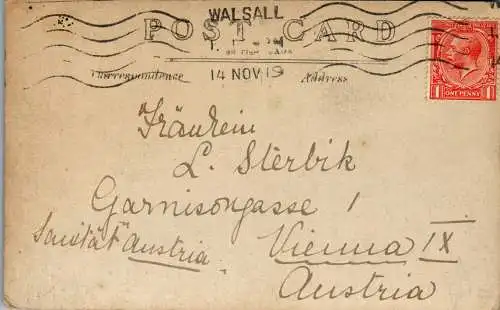 WALSALL
POST CARD
14 NOV 19
Correspondence
Address
ONE PENNY
Fräulein
L. Sterbik
Garnisongasse 1
Sanität Austria
Vienna IX
Austria